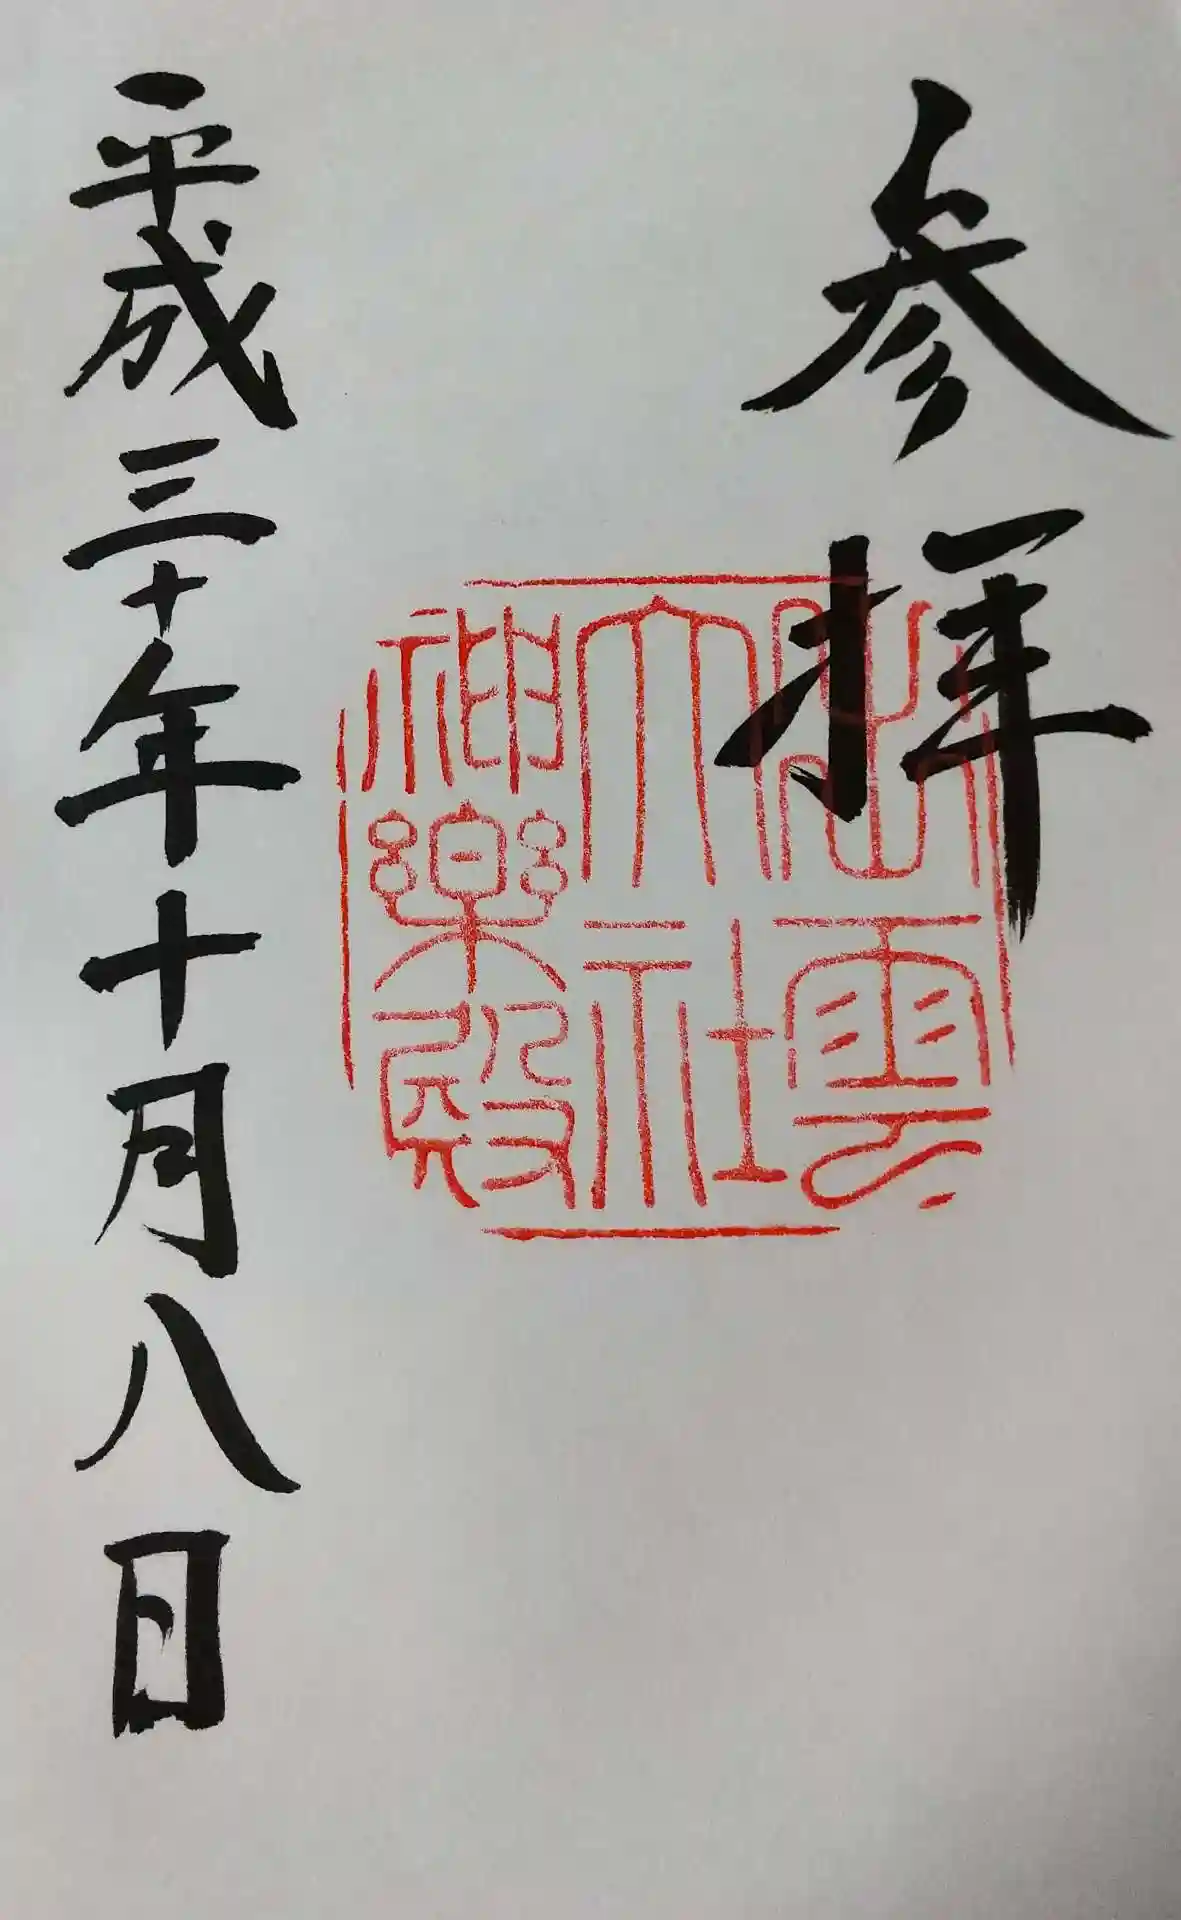 参拝
出雲
大社
神楽殿
平成三十年十月八日